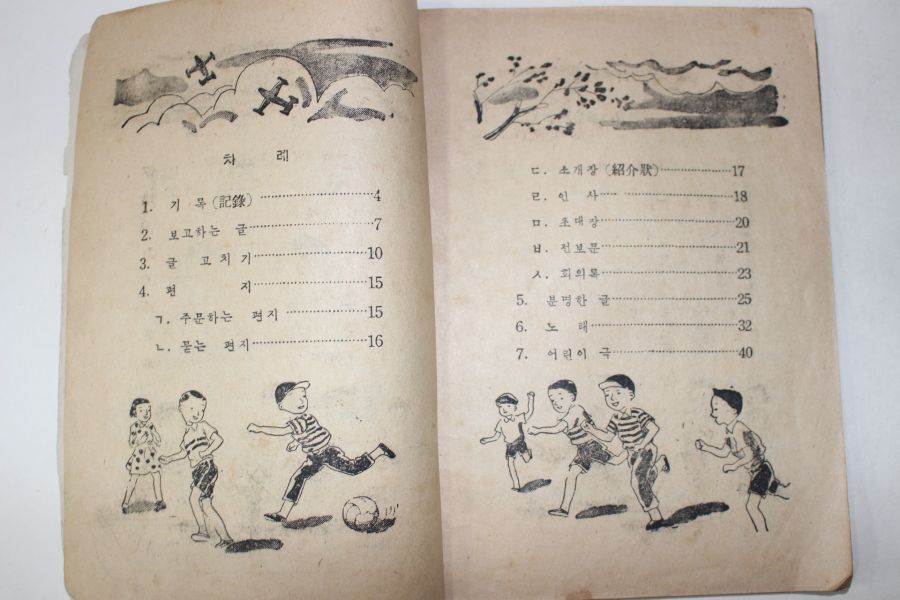 차 례
1. 기 록 (記錄) 4
2. 보고하는 글 7
3. 글 고치기 10
4. 편 지 15
ㄱ. 주문하는 편지 15
ㄴ. 묻는 편지 16
ㄷ. 소개장 (紹介狀) 17
ㄹ. 인 사 18
ㅁ. 초대장 20
ㅂ. 전보문 21
ㅅ. 회의록 23
5. 분명한 글 25
6. 노 래 32
7. 어린이 극 40